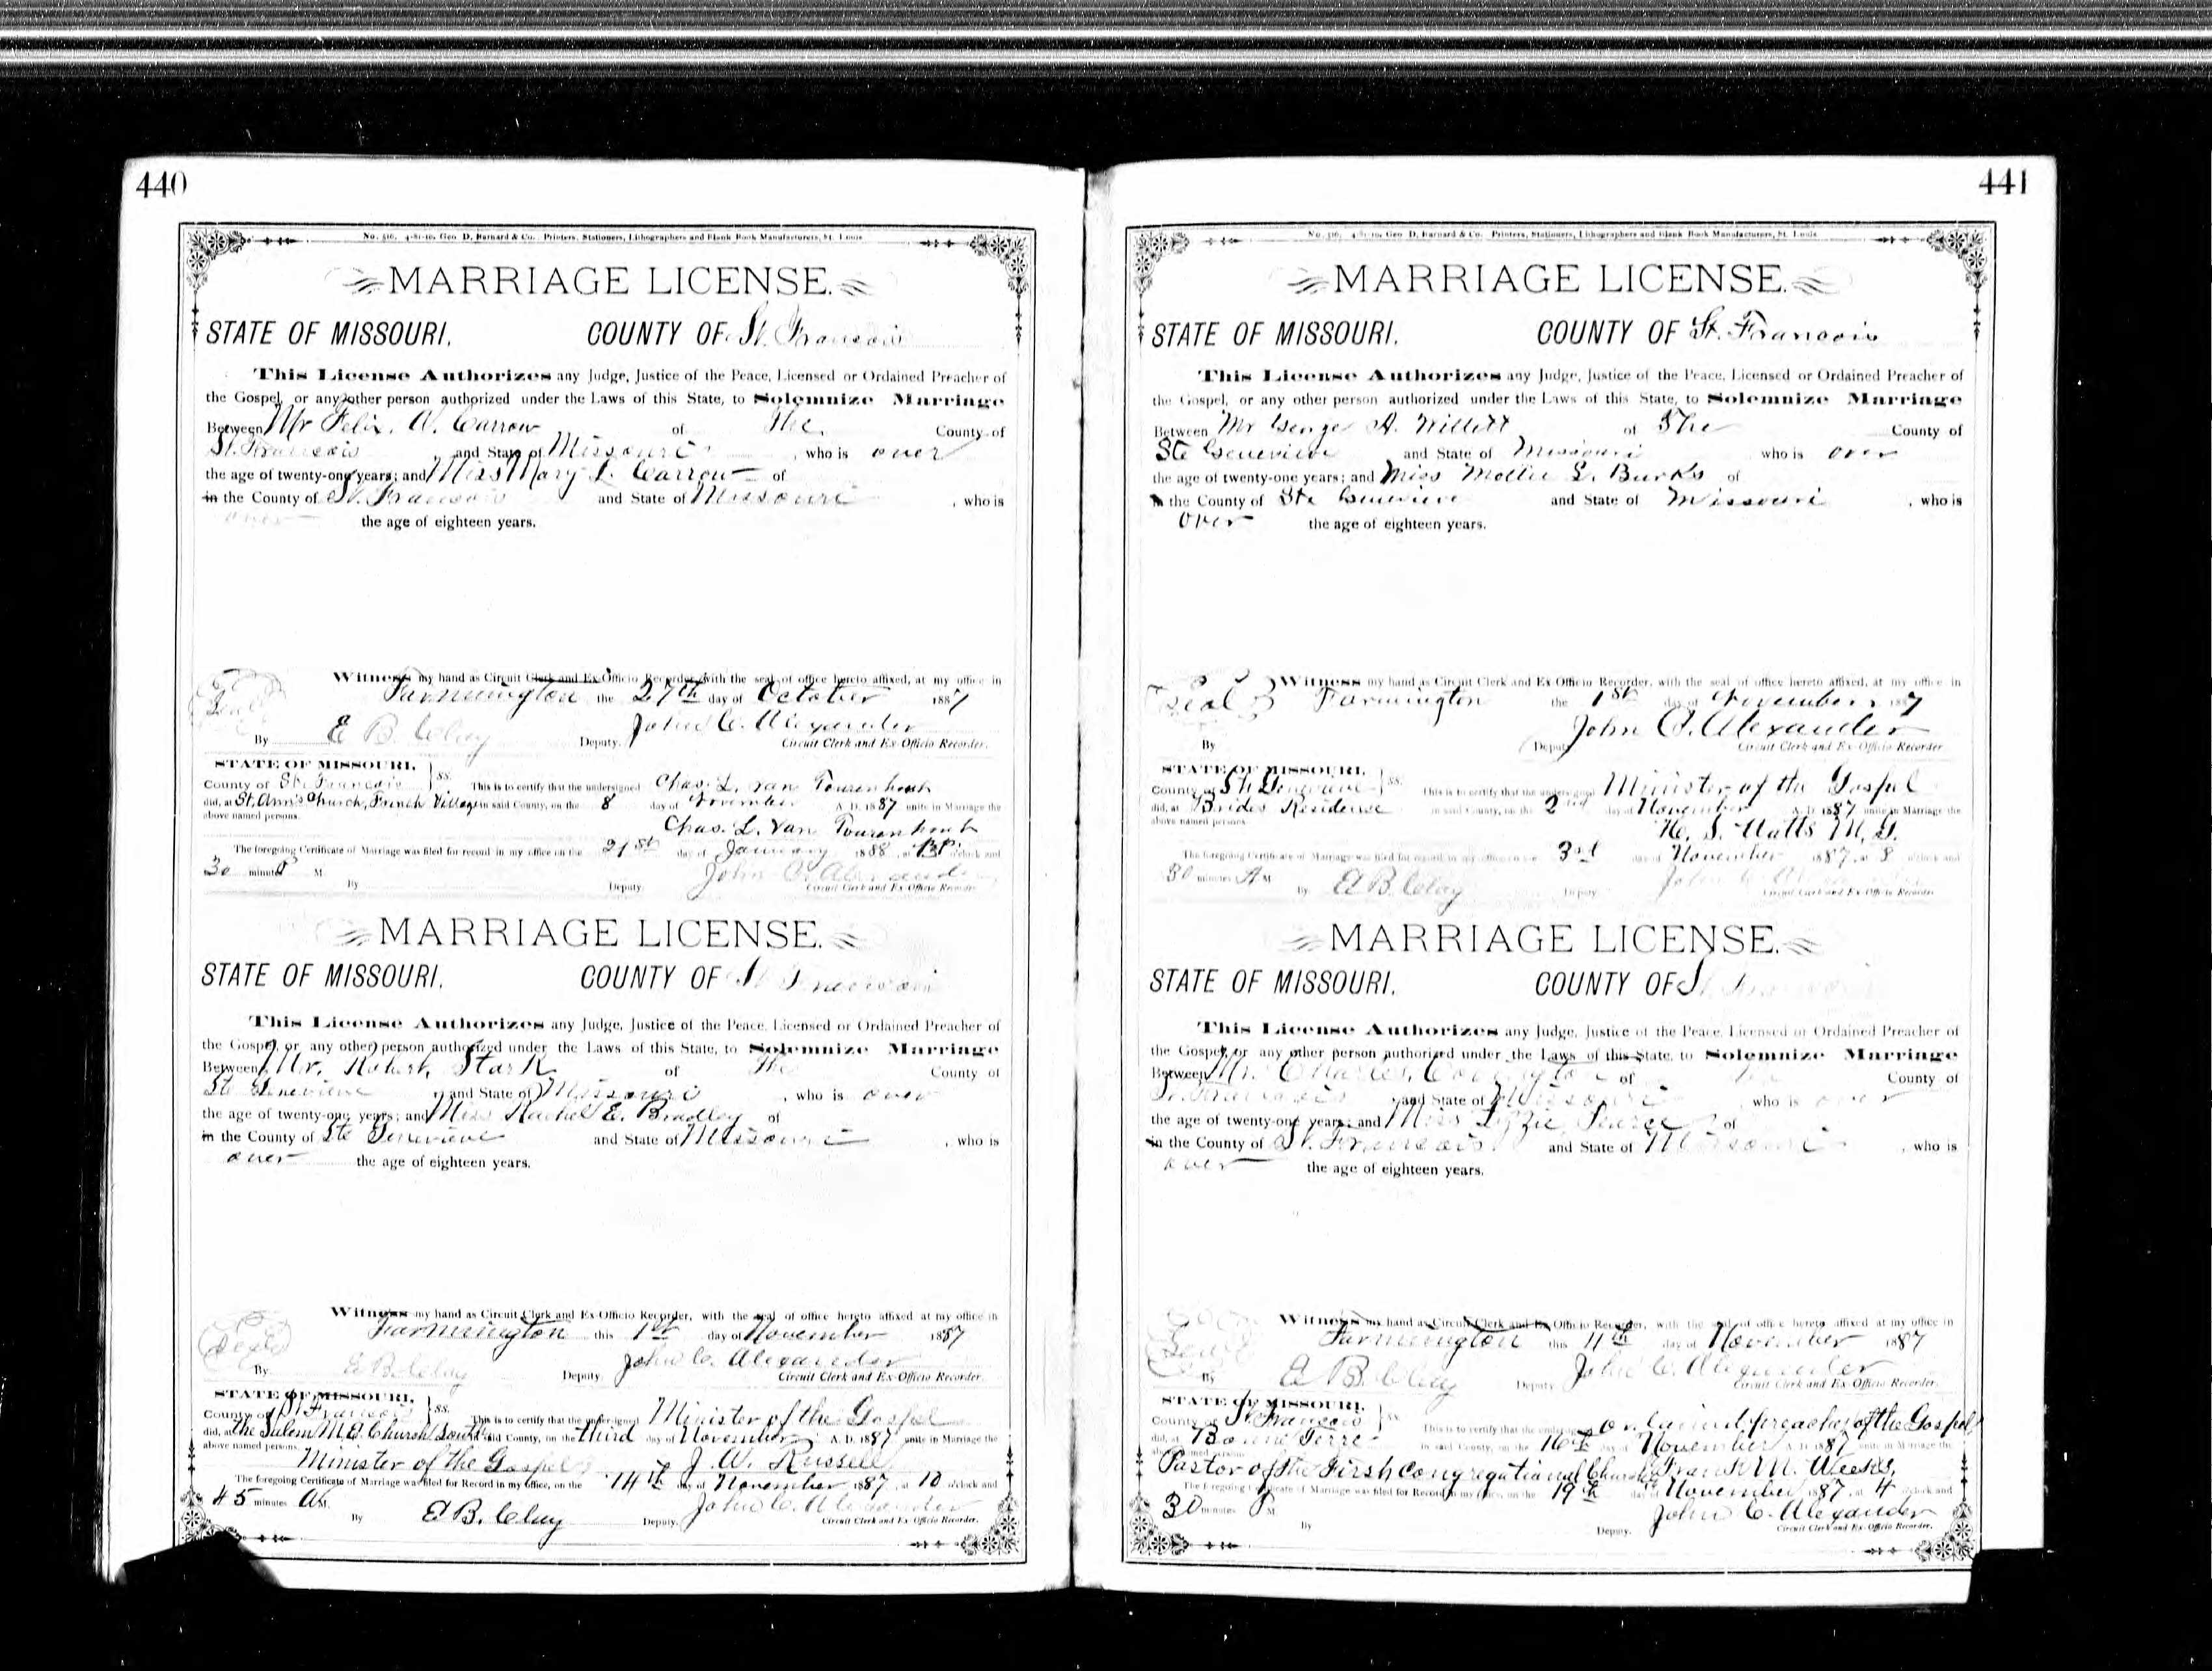 440
No. 516. 4-81-10. Geo. D. Barnard & Co. Printers, Stationers, Lithographers and Blank Book Manufacturers, St. Louis
MARRIAGE LICENSE.
STATE OF MISSOURI. COUNTY OF St. Francois
This License Authorizes any Judge, Justice of the Peace, Licensed or Ordained Preacher of
the Gospel, or any other person authorized under the Laws of this State, to Solemnize Marriage
Between Mr Felix. W. Carrow of The County of
St. Francois and State of Missouri, who is over
the age of twenty-one years; and Miss Mary L. Carrow of
in the County of St. Francois and State of Missouri, who is
over the age of eighteen years.
Witness my hand as Circuit Clerk and Ex-Officio Recorder, with the seal of office hereto affixed, at my office in
Seal Farmington the 27th day of October 1887
By E B. Clay Deputy. John C. Alexander
Circuit Clerk and Ex-Officio Recorder.
STATE OF MISSOURI,
County of St. Francois ss. This is to certify that the undersigned Chas. L. van Tourenhout
did, at St. Ann's Church, French Village in said County, on the 8 day of November A. D. 1887 unite in Marriage the
above named persons.
Chas. L. Van Tourenhout
The foregoing Certificate of Marriage was filed for record in my office on the 21st day of January 1888, at o'clock and
30 minutes P M.
By Deputy. John C. Alexander
Circuit Clerk and Ex-Officio Recorder.
MARRIAGE LICENSE.
STATE OF MISSOURI. COUNTY OF St Francois
This License Authorizes any Judge, Justice of the Peace, Licensed or Ordained Preacher of
the Gospel, or any other person authorized under the Laws of this State, to Solemnize Marriage
Between Mr. Robert Stark of The County of
Ste Genevieve and State of Missouri, who is over
the age of twenty-one years; and Miss Rachel E. Bradley of
in the County of Ste Genevieve and State of Missouri, who is
over the age of eighteen years.
Witness my hand as Circuit Clerk and Ex-Officio Recorder, with the seal of office hereto affixed at my office in
Seal Farmington this 1st day of November 1887
By E B. Clay Deputy. John C. Alexander
Circuit Clerk and Ex-Officio Recorder.
STATE OF MISSOURI,
County of St Francois ss. This is to certify that the undersigned Minister of the Gospel
did, at the Salem M. E. Church South in said County, on the third day of November A. D. 1887 unite in Marriage the
above named persons.
Minister of the Gospel J. W. Russell
The foregoing Certificate of Marriage was filed for Record in my office, on the 14th day of November 1887, at 10 o'clock and
45 minutes A M.
By E B. Clay Deputy. John C. Alexander
Circuit Clerk and Ex-Officio Recorder.
441
No. 516, 4-81-10. Geo D. Barnard & Co. Printers, Stationers, Lithographers and Blank Book Manufacturers, St. Louis
MARRIAGE LICENSE.
STATE OF MISSOURI. COUNTY OF St. Francois
This License Authorizes any Judge, Justice of the Peace, Licensed or Ordained Preacher of
the Gospel, or any other person authorized under the Laws of this State, to Solemnize Marriage
Between Mr George A. Willett of The County of
Ste Genevieve and State of Missouri who is over
the age of twenty-one years; and Miss Mollie L. Burks of
in the County of Ste Genevieve and State of Missouri, who is
over the age of eighteen years.
Witness my hand as Circuit Clerk and Ex-Officio Recorder, with the seal of office hereto affixed, at my office in
Seal Farmington the 1st day of November 1887
By Deputy John C. Alexander
Circuit Clerk and Ex-Officio Recorder
STATE OF MISSOURI,
County of St Genevieve ss. This is to certify that the undersigned Minister of the Gospel
did, at Brides Residense in said County, on the 2nd day of November A. D. 1887 unite in Marriage the
above named persons.
H. S. Watts M. G.
The foregoing Certificate of Marriage was filed for record in my office on the 3rd day of November 1887, at 8 o'clock and
30 minutes A M.
By E B. Clay Deputy. John C Alexander
Circuit Clerk and Ex-Officio Recorder
MARRIAGE LICENSE.
STATE OF MISSOURI. COUNTY OF St. Francois
This License Authorizes any Judge, Justice of the Peace, Licensed or Ordained Preacher of
the Gospel, or any other person authorized under the Laws of this State, to Solemnize Marriage
Between Mr. Charles, Covington of The County of
St. Francois and State of Missouri, who is over
the age of twenty-one years; and Miss Lizzie Pearce of
in the County of St. Francois and State of Missouri, who is
over the age of eighteen years.
Witness my hand as Circuit Clerk and Ex Officio Recorder, with the seal of office hereto affixed, at my office in
Seal Farmington this 4th day of November 1887
By E B. Clay Deputy. John C. Alexander
Circuit Clerk and Ex-Officio Recorder.
STATE OF MISSOURI,
County of St Francois ss. This is to certify that the undersigned preacher of the Gospel
did, at Bonne Terre in said County, on the 16th day of November A. D. 1887 unite in Marriage the
above named persons.
Pastor of the First Congregational Church Frank M. Weeks,
The foregoing Certificate of Marriage was filed for Record in my office, on the 19th day of November 1887, at 4 o'clock and
30 minutes P M
By Deputy. John C. Alexander
Circuit Clerk and Ex-Officio Recorder.